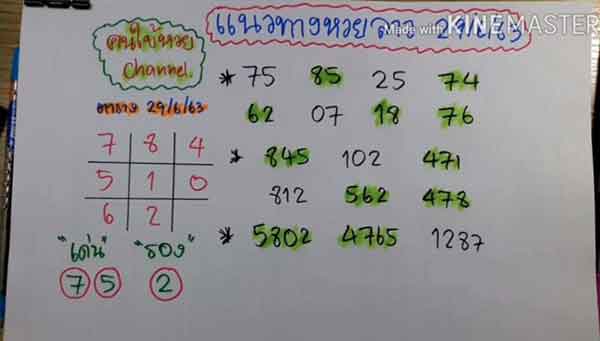 แนวทางหวยลาว
Made with KINEMASTER
คนใบ้หวย
Channel.
* 75 85 25 74
ตาราง 29/6/63
62 07 18 76
7 8 4
* 845 102 471
5 1 0
812 562 478
6 2
* 5802 4765 1287
"เด่น" "รอง"
7 5 2